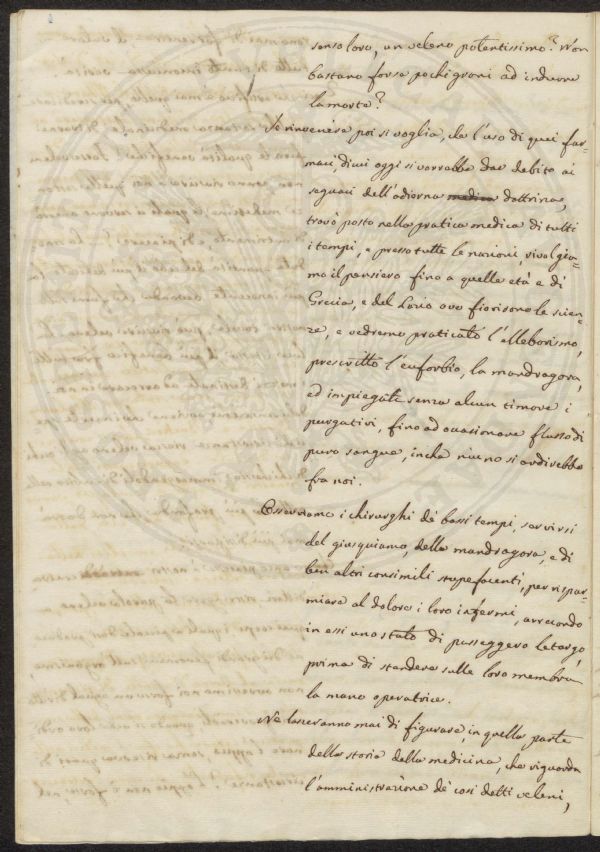 senso loro, un veleno potentissimo? Non
bastano forse pochi grani ad indurre
la morte?
Se rinvenire poi si voglia, che l'uso di quei far-
maci, di cui oggi si vorrebbe dar debito ai
seguaci dell'odierna medica dottrina,
trovò posto nella pratica medica di tutti
i tempi, e presso tutte le nazioni rivolgia-
mo il pensiero fino a quelle età e di
Grecia, e del Lazio ove fiorirono le scien-
ze, e vedremo praticato l'elleborismo,
prescritto l'euforbio, la mandragora,
ed impiegati senza alcun timore i
purgativi, fino ad occasionare flusso di
puro sangue, inchè niuno si ardirebbe
fra noi.
Osserviamo i chirurghi de' bassi tempi, servirsi
del giusquiamo, della mandragora, e di
ben altri consimili stupefacenti, per rispar-
miare al dolore i loro infermi, arrecando
in essi uno stato di passeggero letargo,
prima di stendere sulle loro membra
la mano operatrice.
Ne lasceranno mai di figurare in quella parte
della storia della medicina, che riguarda
l'amministrazione de' così detti veleni,